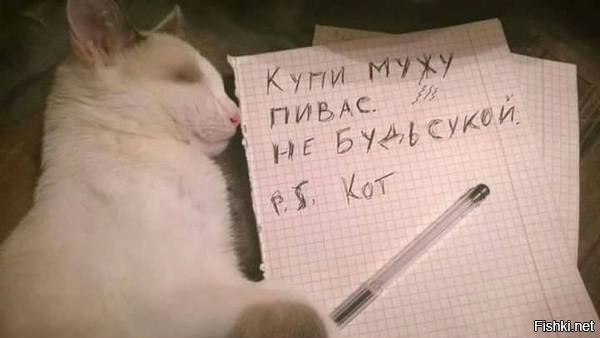 КУПИ МУЖУ
ПИВАС.
НЕ БУДЬ СУКОЙ.
P.S. КОТ
Fishki.net